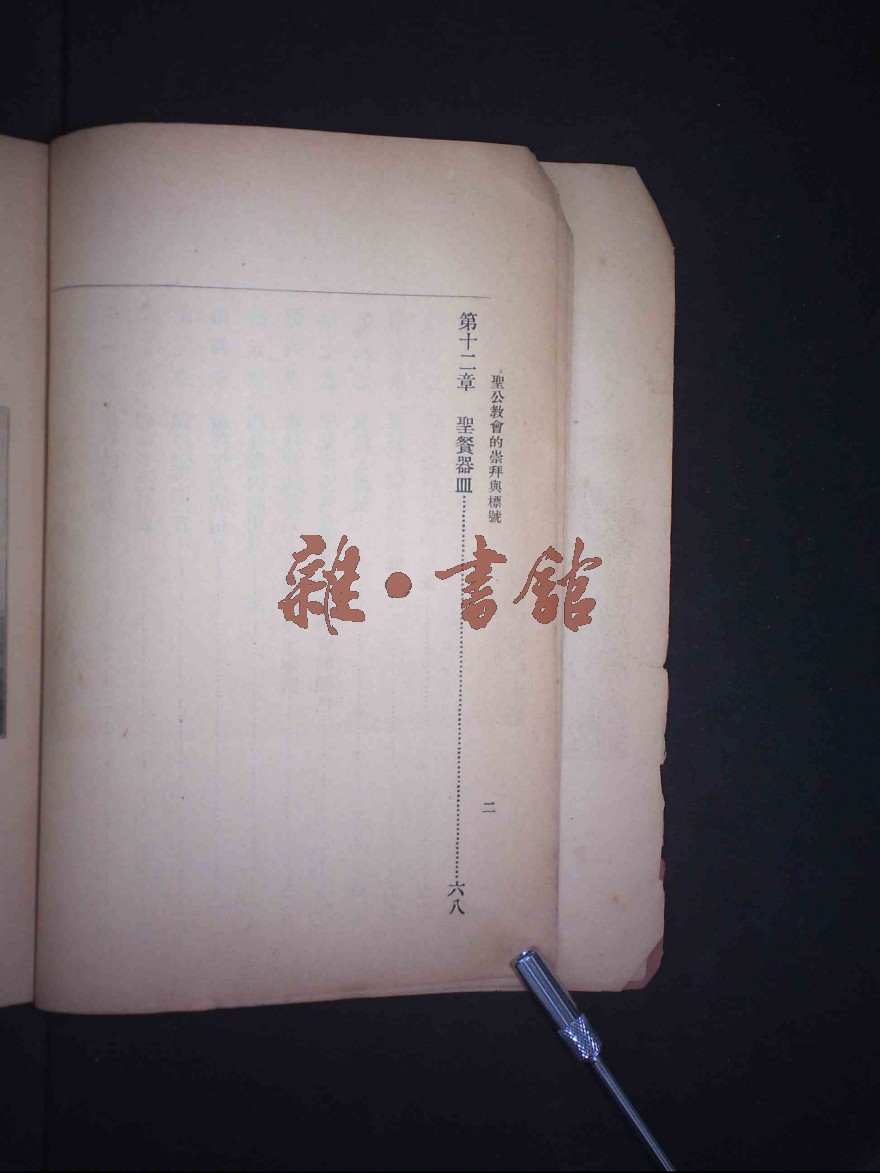 聖公教會的崇拜與標號
二
第十二章 聖餐器皿……六八
雜·書館